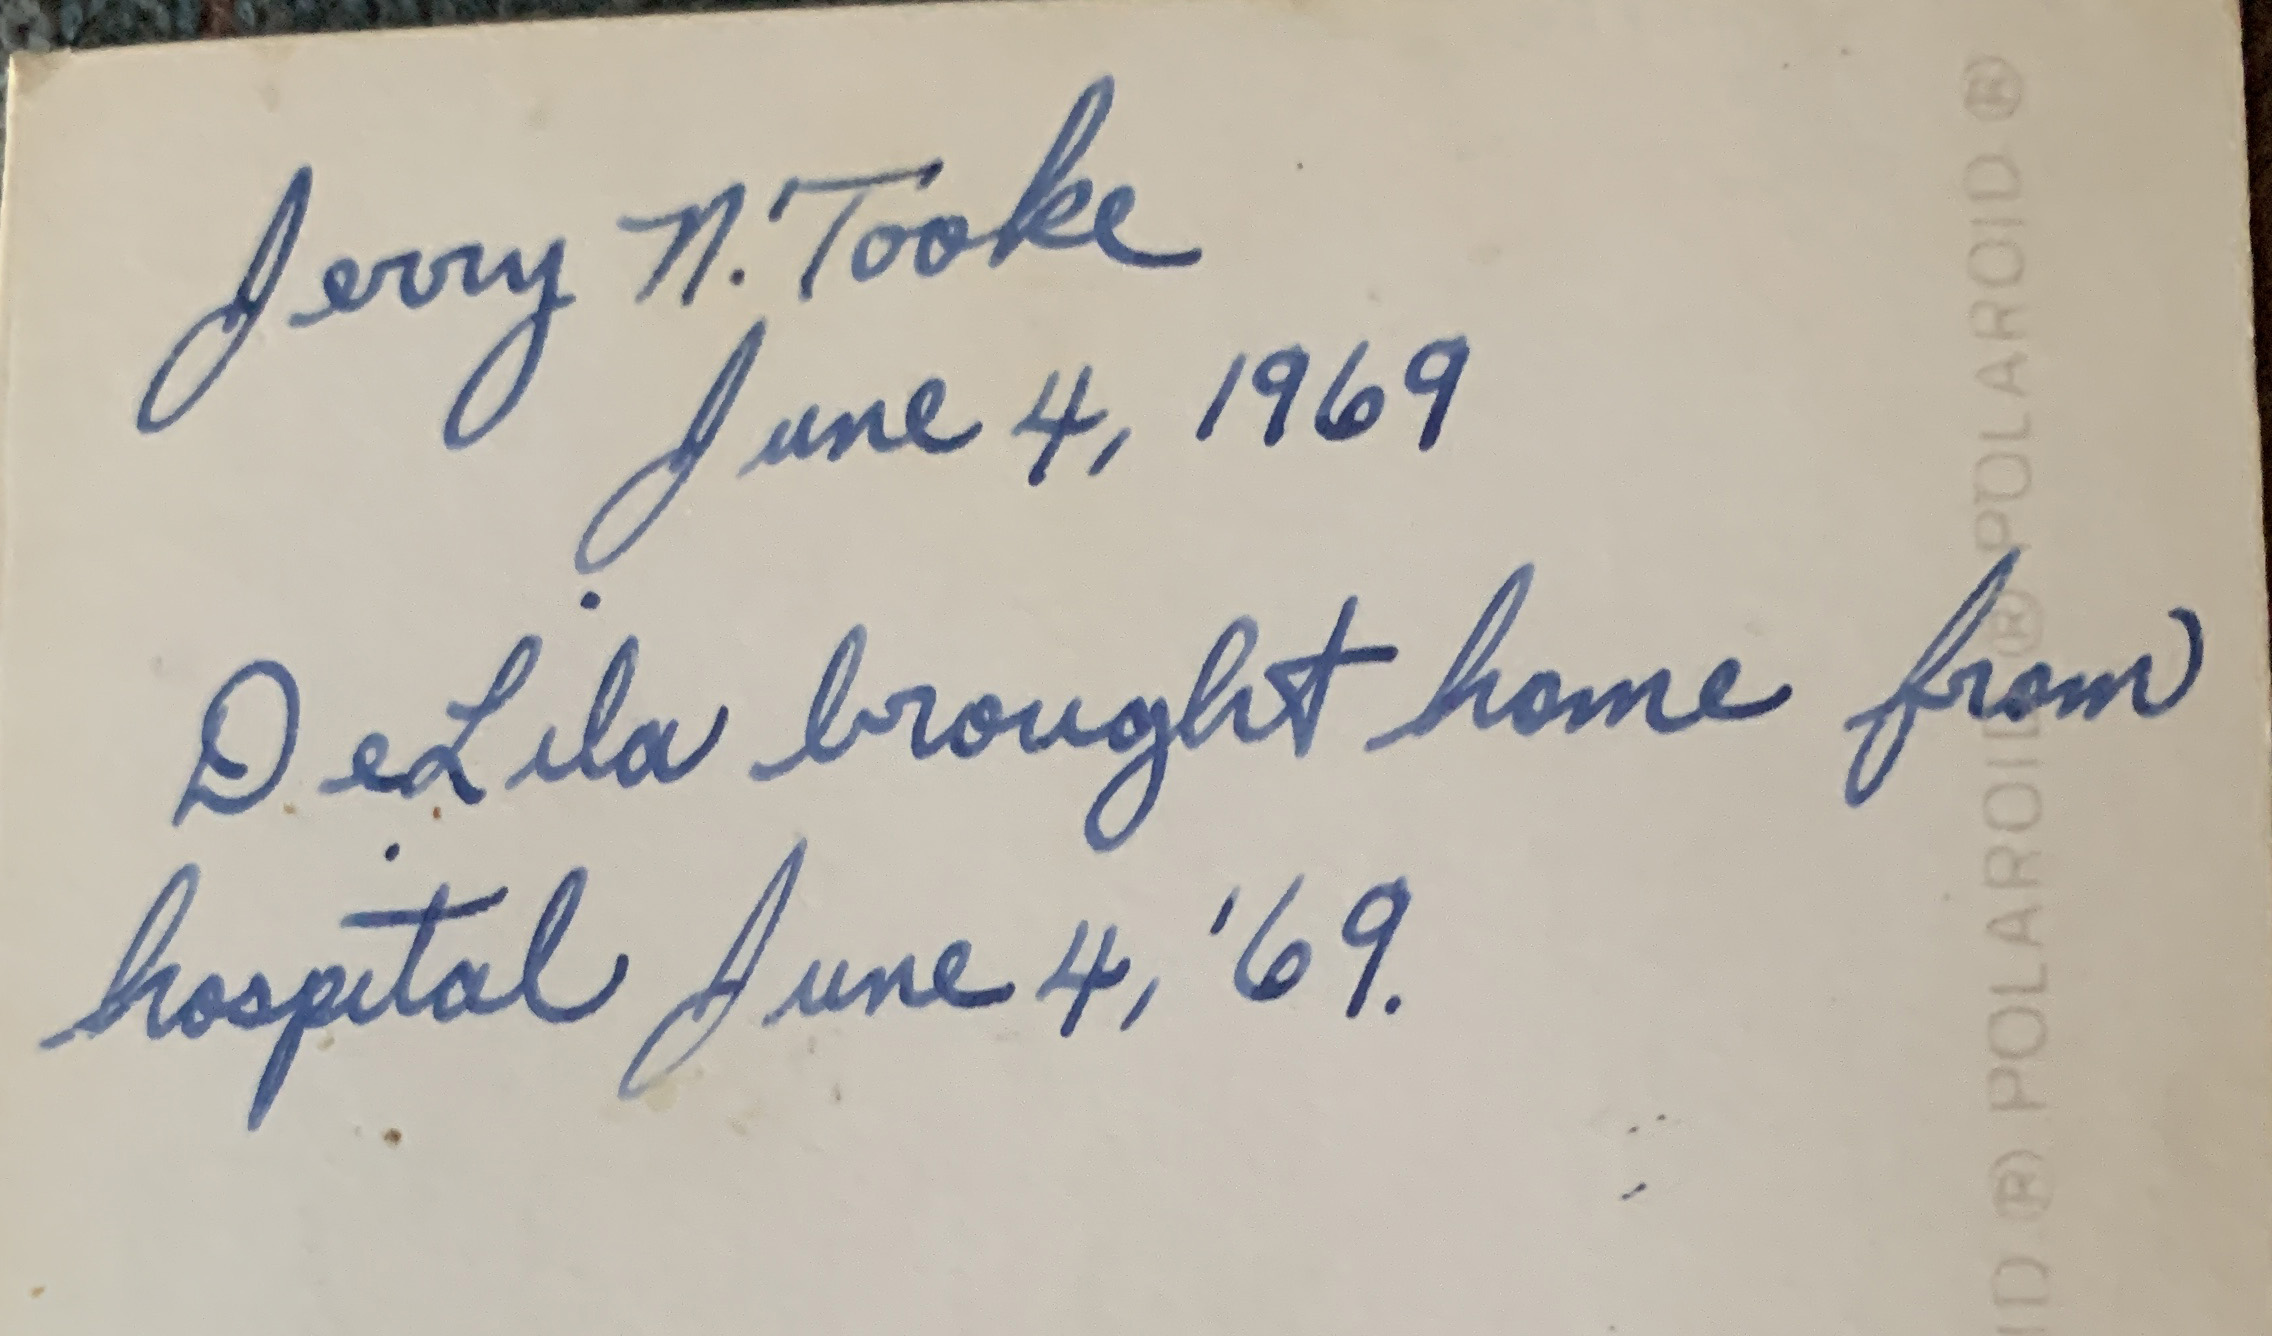 Jerry N. Tooke
June 4, 1969
DeLila brought home from
hospital June 4, '69.
ID ® POLAROID ® POLAROID ®